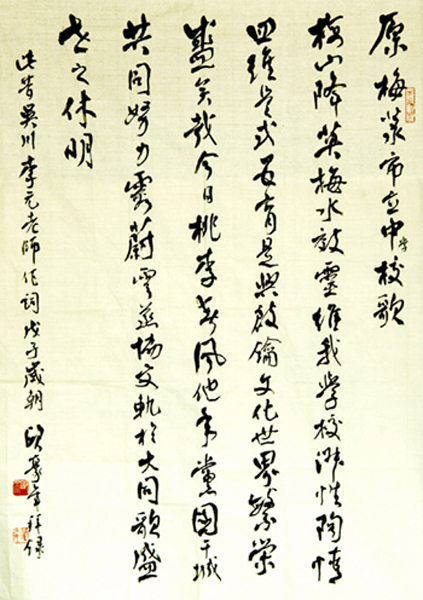 原梅菉市立中学校歌
梅山降英梅水效靈維我學校淑性陶情
四維是式五育是興鼓鑰文化世界繁榮
盛矣哉今日桃李春風他年黨國干城
共同努力霞蔚雲蒸協文軌於大同歌盛
世之休明
此昔吳川李元老師作詞戊子歲朝